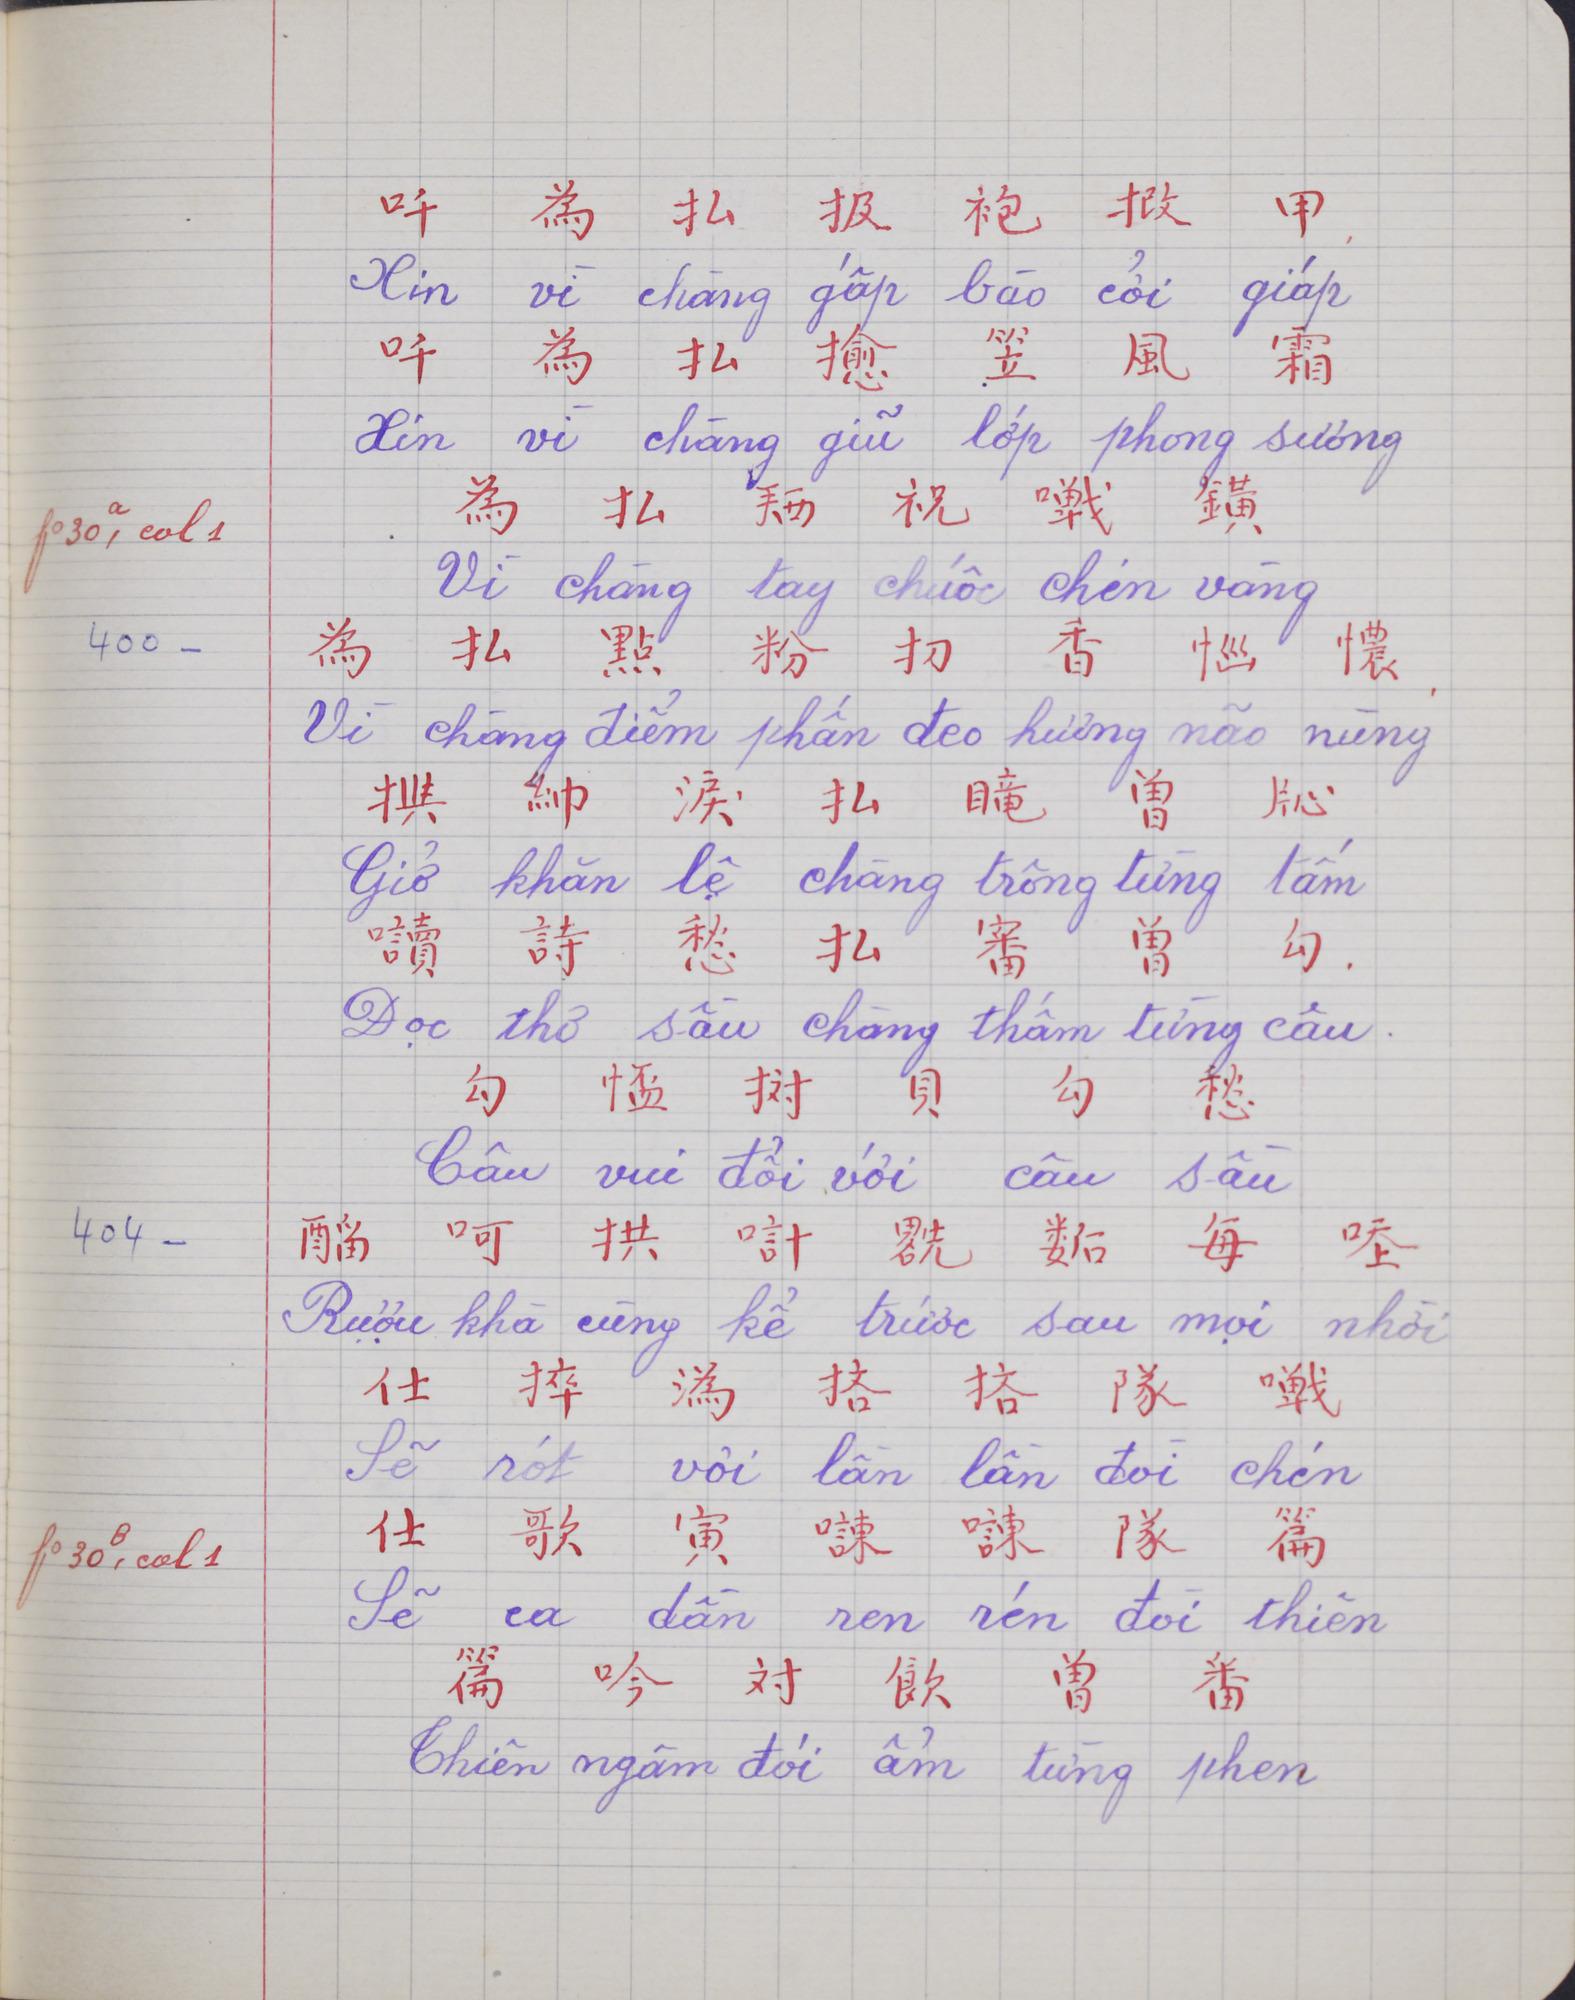 吀 為 払 扱 袍 𢶒 甲
Xin vì chàng gấp bào cởi giáp
吀 為 払 笠 風 霜
Xin vì chàng giũ lớp phong sương
fº 30ª, col 1
為 払 𢬣 祝 𠸥 鐄
Vì chàng tay chuốc chén vàng
400 -
為 払 點 粉 扨 香 惱 憹
Vì chàng điểm phấn đeo hương não nùng
㩡 帥 淚 払 曾
Giở khăn lệ chàng trông từng tấm
讀 詩 愁 払 審 曾 勾.
Đọc thơ sầu chàng thấm từng câu.
勾 㤿 貝 勾 愁
Câu vui đổi với câu sầu
404 -
呵 拱 計 每
Rượu khà cùng kể trước sau mọi nhời
仕 捽 溈 搭 搭 隊
Sẽ rót vơi lần lần đòi chén
fº 30ᴮ, col 1
仕 歌 寅 隊 篇
Sẽ ca dần ren rén đòi thiên
篇 吟 対 飲 曾 番
Thiên ngâm đối ẩm từng phen